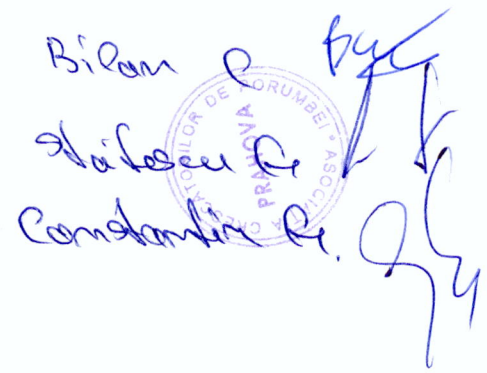 Bilan C
Stătescu Gr
Constantin Gr.
ASOCIAȚIA CRESCĂTORILOR DE PORUMBEI
PRAHOVA